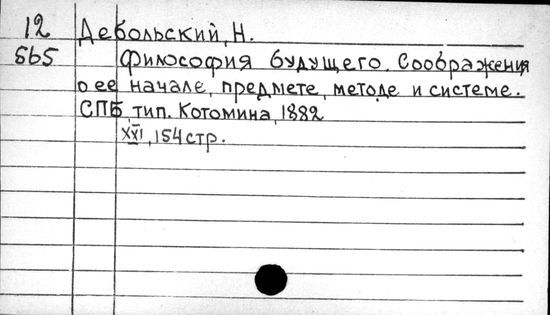 12 Дебольский, Н.
565 Философия будущего. Соображения
о ее начале, предмете, методе и системе.
СПБ, тип. Котомина, 1882
XXI, 154 стр.